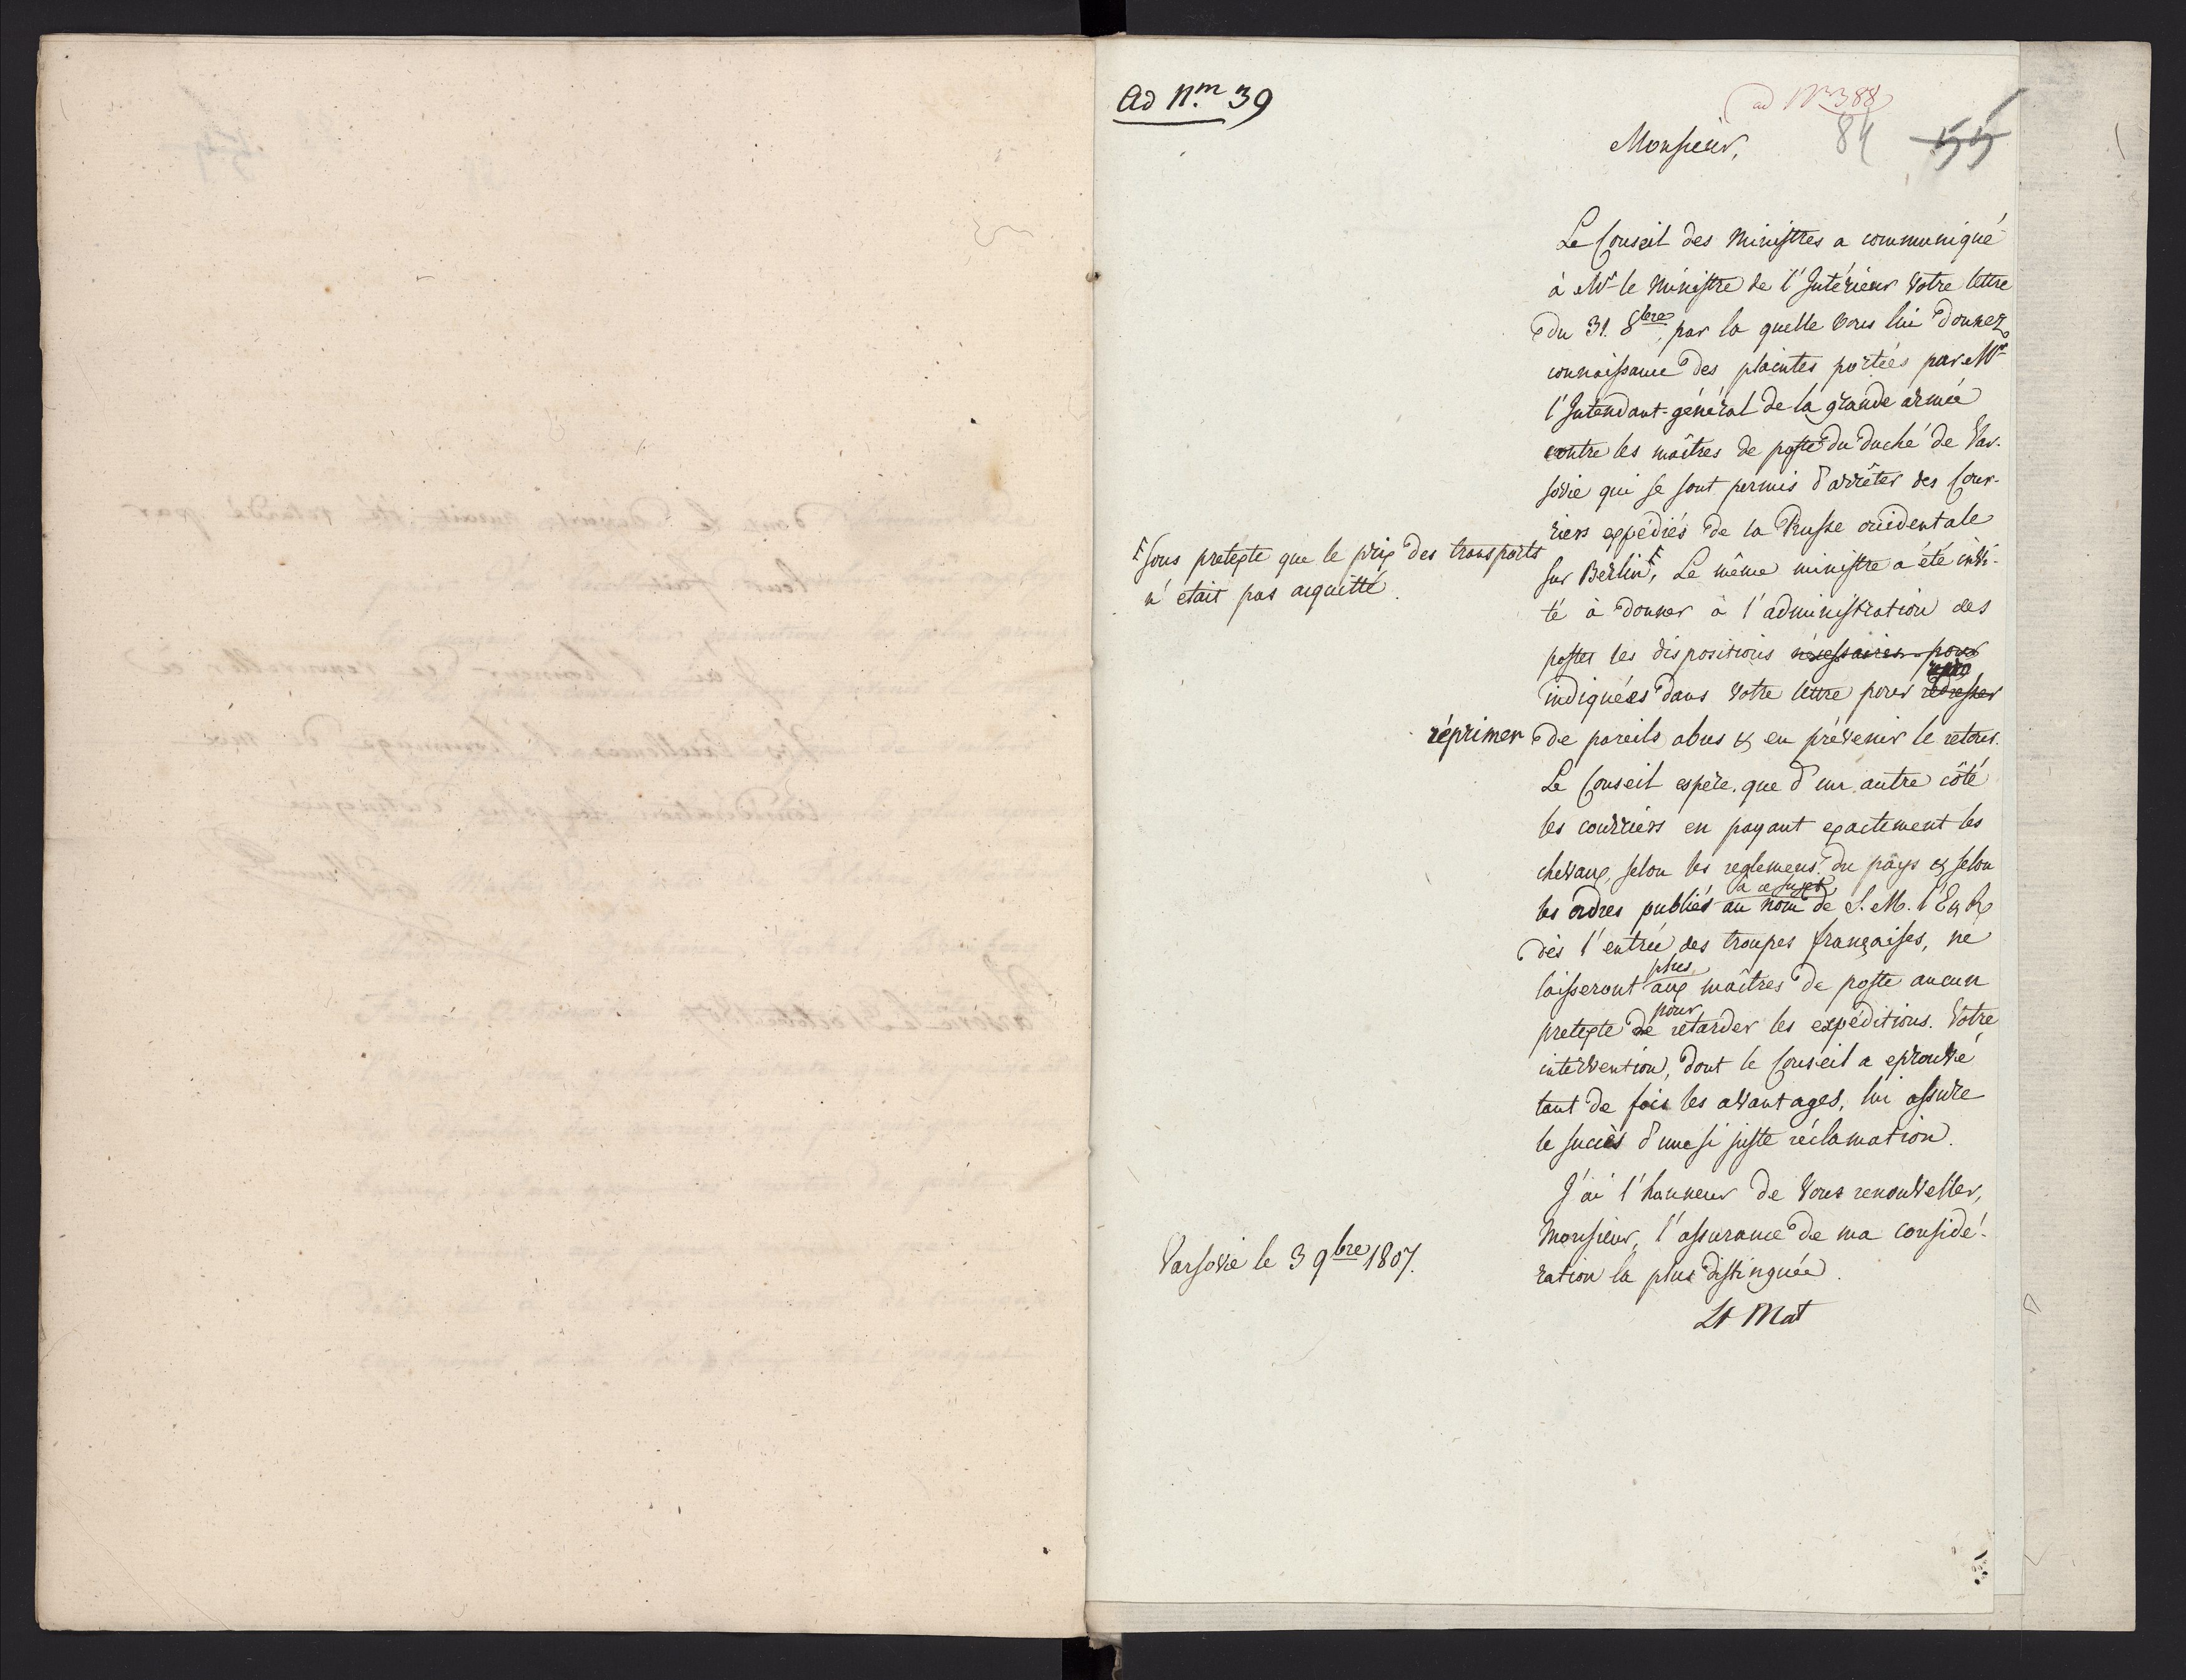 Ad N.m 39
ad Nr 388
84 55
Monsieur,
Le Conseil des Ministres a communiqué
à Mr le Ministre de l'Intérieur votre lettre
du 31. 8bre, par la quelle vous lui donnez
connaissance des plaintes portées par Mr
l'Intendant-général de la grande armée
contre les maîtres de poste du duché de Var-
sovie qui se sont permis d'arrêter des Cour-
riers expédiés de la Prusse occidentale
sur Berlin F, Le même ministre a été invi-
F sous pretexte que le prix des transports
n'etait pas acquitté.
té à donner à l'administration des
postes les dispositions nécessaires pour
indiquées dans votre lettre pour redresser
réprimer de pareils abus & en prévenir le retour.
Le Conseil espère, que d'un autre côté
les courriers en payant exactement les
chevaux, selon les reglemens du pays & selon
à ce sujet
les ordres publiés au nom de S. M. l'E & R
dès l'entrée des troupes françaises, ne
plus
laisseront aux maîtres de poste aucun
pour
pretexte de retarder les expéditions. Votre
intervention, dont le Conseil a eprouvé
tant de fois les avantages, lui assure
le succès d'une si juste réclamation.
J'ai l'honneur de vous renouveller,
Monsieur, l'assurance de ma considé-
ration la plus distinguée.
Varsovie le 3 9bre 1807.